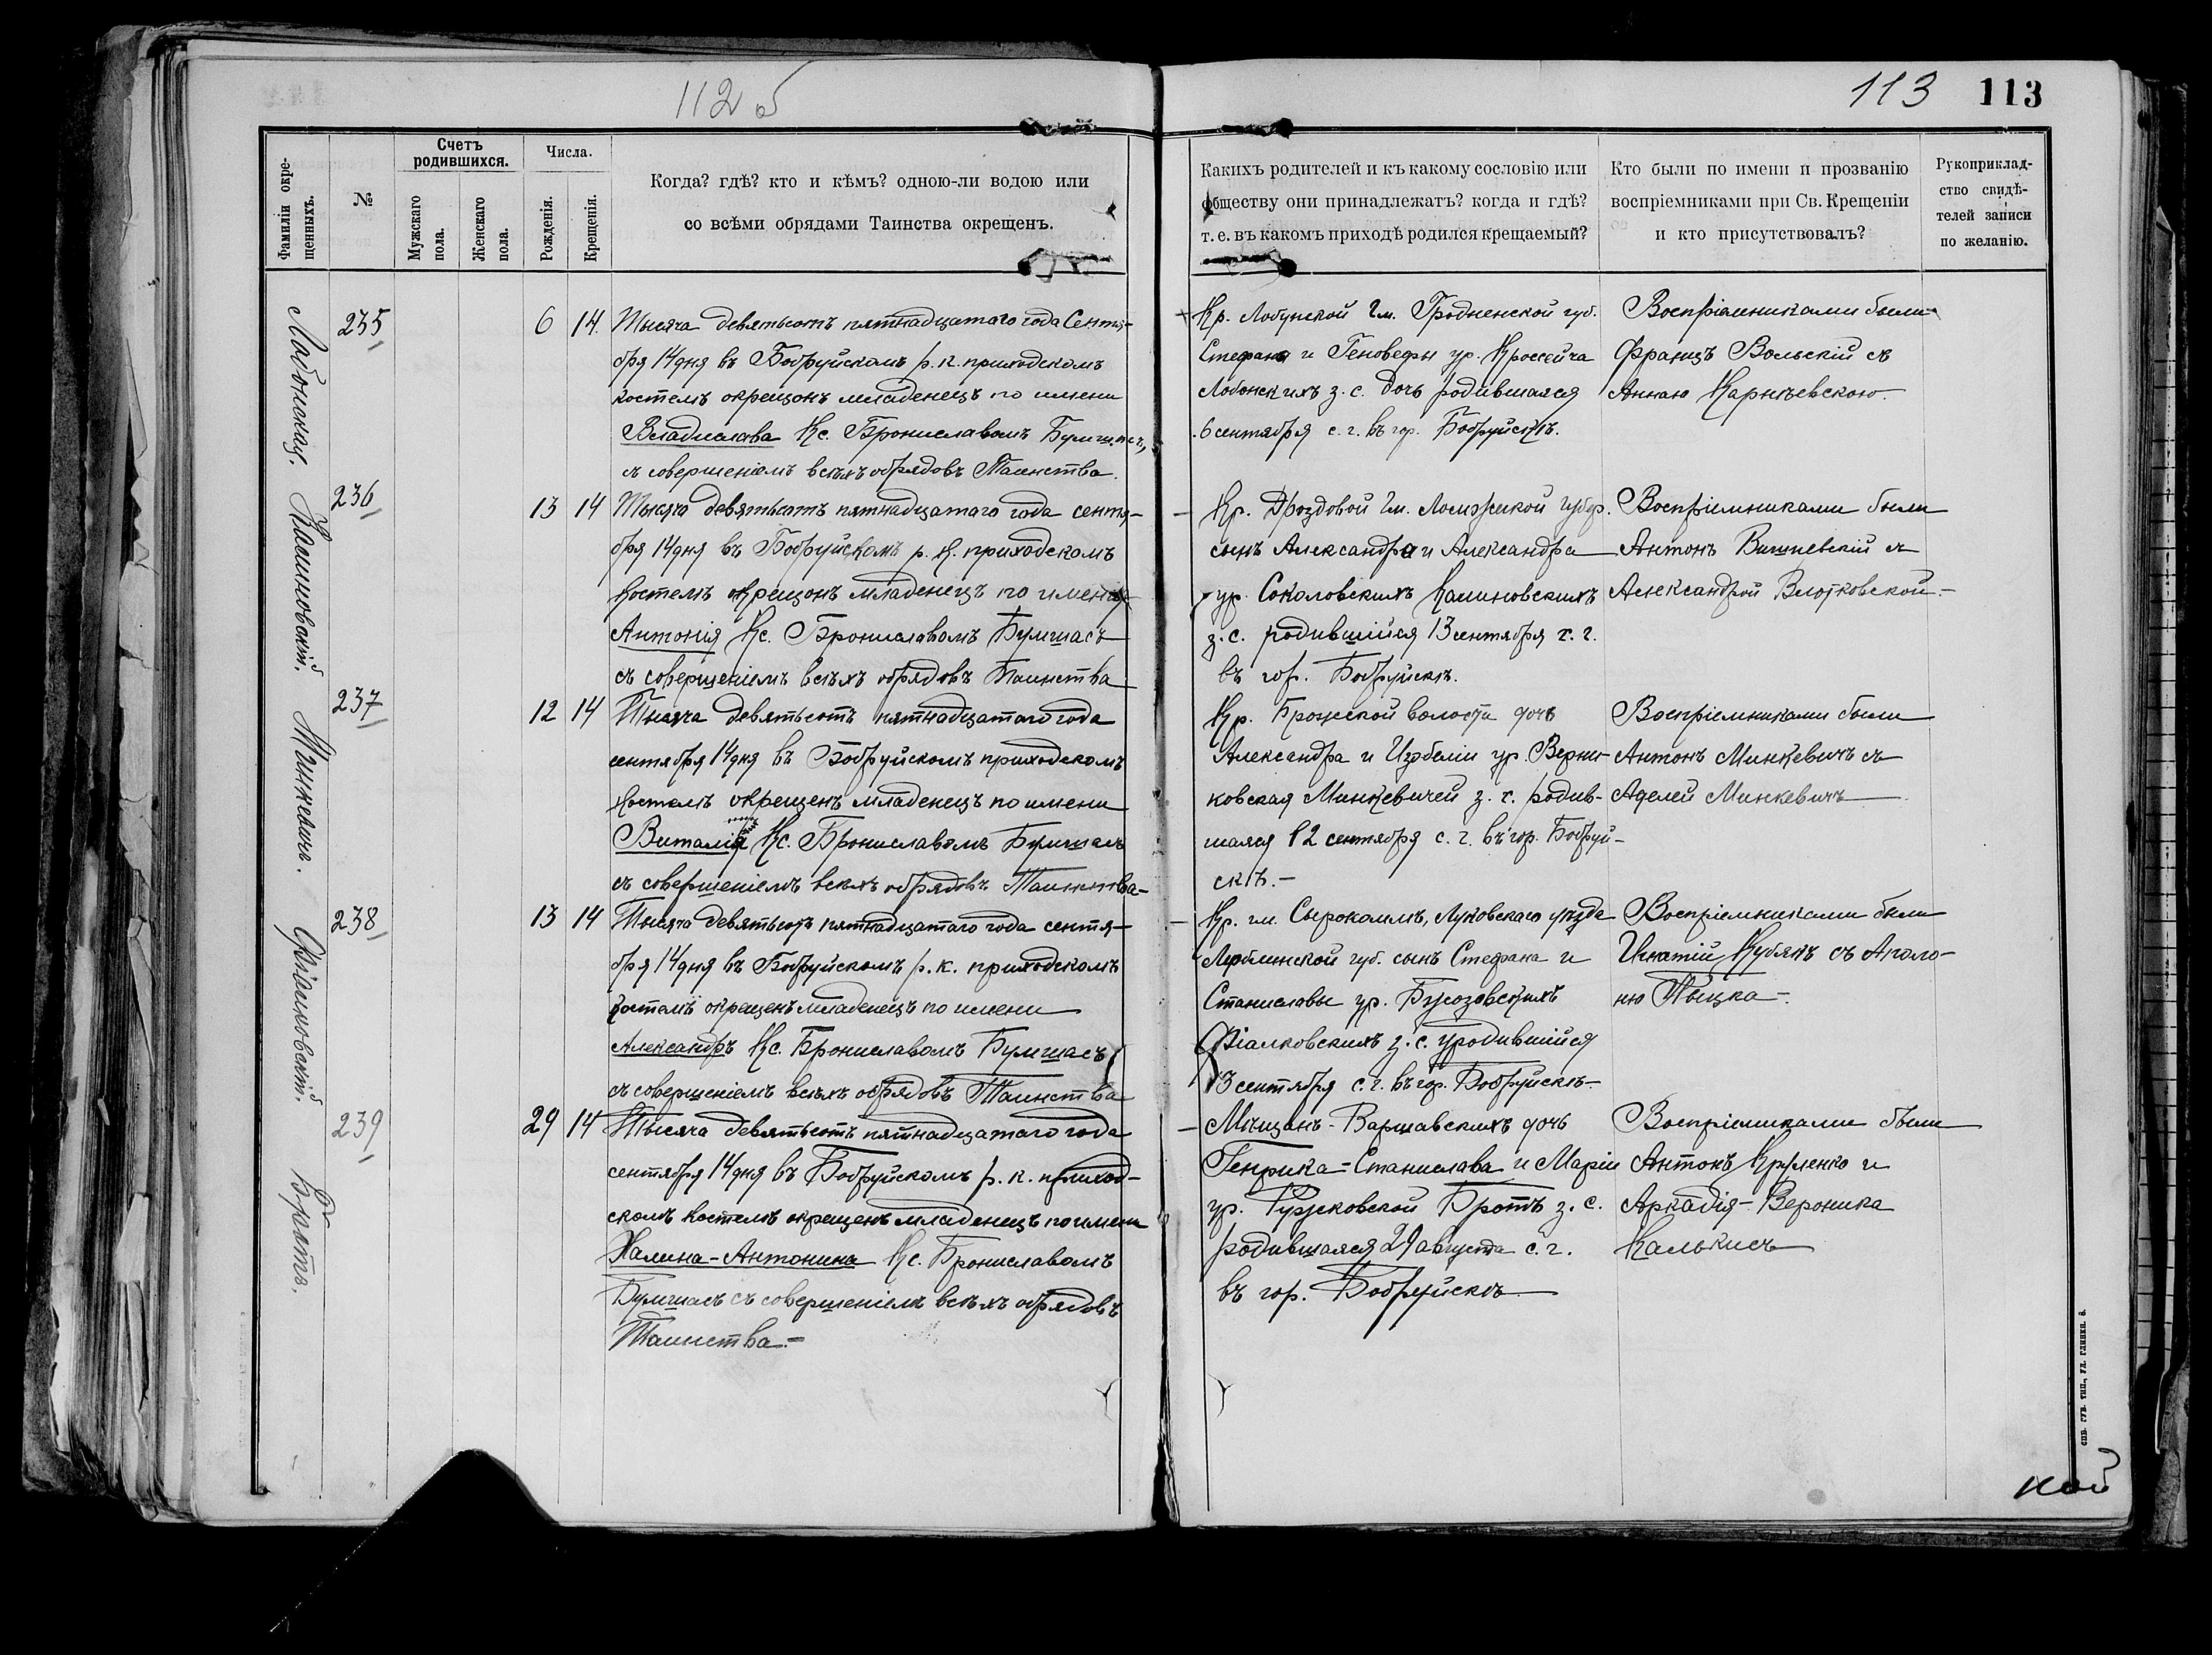 112 б
113 113
Фамиліи окре-
щенныхъ.
№
Счетъ
родившихся.
Мужскаго
пола.
Женскаго
пола.
Числа.
Рожденія.
Крещенія.
Когда? гдѣ? кто и кѣмъ? одною-ли водою или
со всѣми обрядами Таинства окрещенъ.
Какихъ родителей и къ какому сословію или
обществу они принадлежатъ? когда и гдѣ?
т. е. въ какомъ приходѣ родился крещаемый?
Кто были по имени и прозванію
воспріемниками при Св. Крещеніи
и кто присутствовалъ?
Рукоприклад-
ство свидѣ-
телей записи
по желанію.
Лабонская.
235
6 14.
Тысяча девятьсотъ пятнадцатаго года Сентя-
бря 14 дня въ Бобруйскомъ р. к. приходскомъ
костелѣ окрещонъ младенецъ по имени
Владислава Кс. Брониславомъ Бумшасъ,
съ совершеніемъ всѣхъ обрядовъ Таинства.
Кр. Лобунской Гм. Гродненской губ.
Стефана и Геновефы ур. Кроссейча
Лобонскихъ з. с. дочь родившаяся
6 сентября с. г. въ гор. Бобруйскѣ.
Воспріемниками были
Францъ Вольскій съ
Аннаю Карнѣевскою.
Калиновскій.
236
13 14
Тысяча девятьсотъ пятнадцатаго года сентя-
бря 14 дня въ Бобруйскомъ р. к. приходскомъ
костелѣ окрещонъ младенецъ по имени
Антонія Кс. Брониславомъ Бумшасъ
съ совершеніемъ всѣхъ обрядовъ Таинства
Кр. Дроздовой Гм. Ломжской губер.
сынъ Александра и Александра
ур. Соколовскихъ Калиновскихъ
з. с. родившійся 13 сентября т. г.
въ гор. Бобруйскѣ.
Воспріемниками были
Антонъ Вишневскій съ
Александрой
Минкевичъ.
237
12 14
Тысяча девятьсотъ пятнадцатаго года
сентября 14 дня въ Бобруйскомъ приходскомъ
костелѣ окрещенъ младенецъ по имени
Виталія Кс. Брониславомъ Бумшасъ
съ совершеніемъ всѣхъ обрядовъ Таинства-
Кр. Брожской волости дочь
Александра и Изабеліи ур. Верни-
ковская Минкевичей з. с. родив-
шаяся 12 сентября с. г. въ гор. Бобруй-
скѣ.-
Воспріемниками были
Антонъ Минкевичъ съ
Аделей Минкевичъ
Фіалковскій.
238
13 14
Тысяча девятьсотъ пятнадцатаго года сентя-
бря 14 дня въ Бобруйскомъ р. к. приходскомъ
костелѣ окрещенъ младенецъ по имени
Александръ Кс. Брониславомъ Бумшасъ
съ совершеніемъ всѣхъ обрядовъ Таинства
Кр. гм. Сырокомлѣ, Луковскаго уѣзда
Люблинской губ. сынъ Стефана и
Станиславы ур.
Фіалковскихъ з. с. уродившійся
13 сентября с. г. въ гор. Бобруйскѣ-
Воспріемниками были
Игнатій Кубякъ съ Аполо-
ню
Бротъ.
239
29 14
Тысяча девятьсотъ пятнадцатаго года
сентября 14 дня въ Бобруйскомъ р. к. приход-
скомъ костелѣ окрещенъ младенецъ по имени
Халина-Антонина Кс. Брониславомъ
Бумшасъ съ совершеніемъ всѣхъ обрядовъ
Таинства.-
Мѣщанъ-Варшавскихъ дочь
Генрика=Станислава и Маріи
ур. Бротъ з. с.
родившаяся 29 августа с. г.
въ гор. Бобруйскѣ
Воспріемниками были
Антонъ Круленко и
Аркадія-Вероника
Калькисъ
СПБ. ГУБ. ТИП., УЛ. ГЛИНКИ, 6.